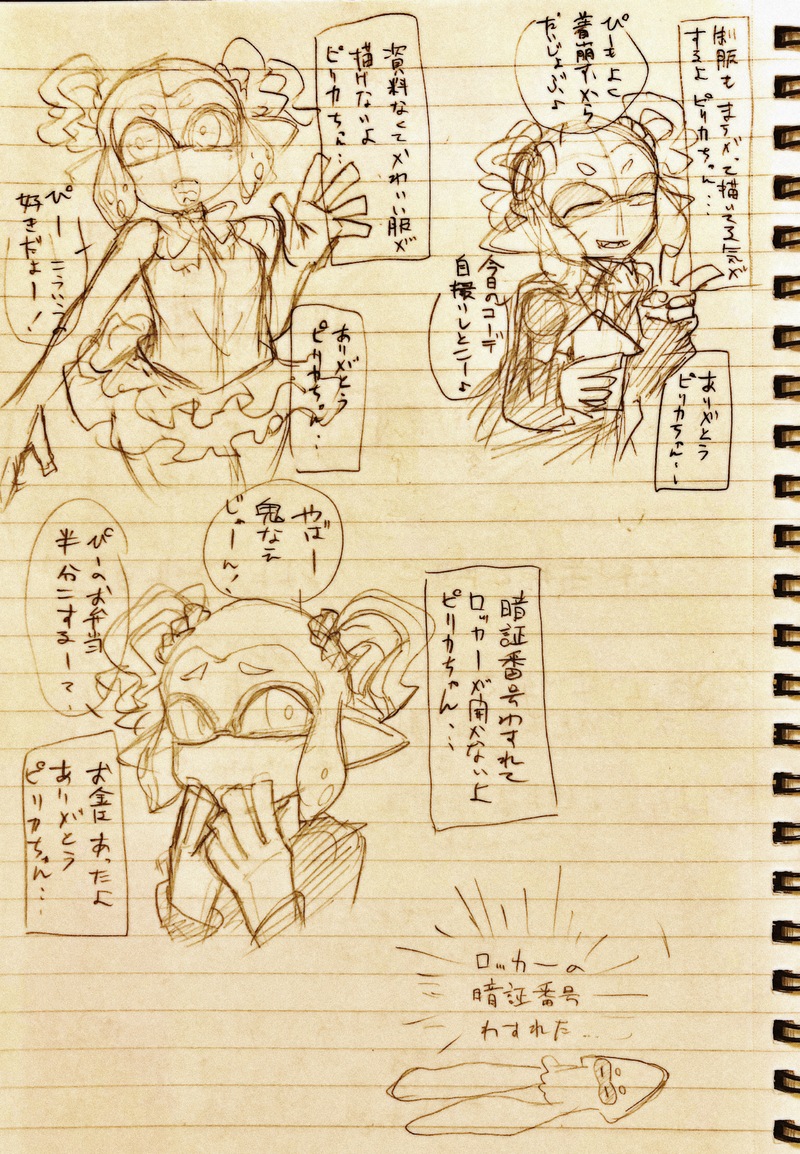 制服もまちがって描いてる気が
するよ ピリカちゃん…
ぴーもよく
着崩すから
だいじょぶよ
今日のコーデ
自撮りしとこーよ
ありがとう
ピリカちゃん…
資料なくてかわいい服が
描けないよ
ピリカちゃん…
ぴーこういうの
好きだよー!
ありがとう
ピリカちゃん…
暗証番号わすれて
ロッカーが開かないよ
ピリカちゃん…
やばー
鬼なえ
じゃーん!
ぴーのお弁当
半分こするーて
お金はあったよ
ありがとう
ピリカちゃん…
ロッカーの
暗証番号
わすれた…